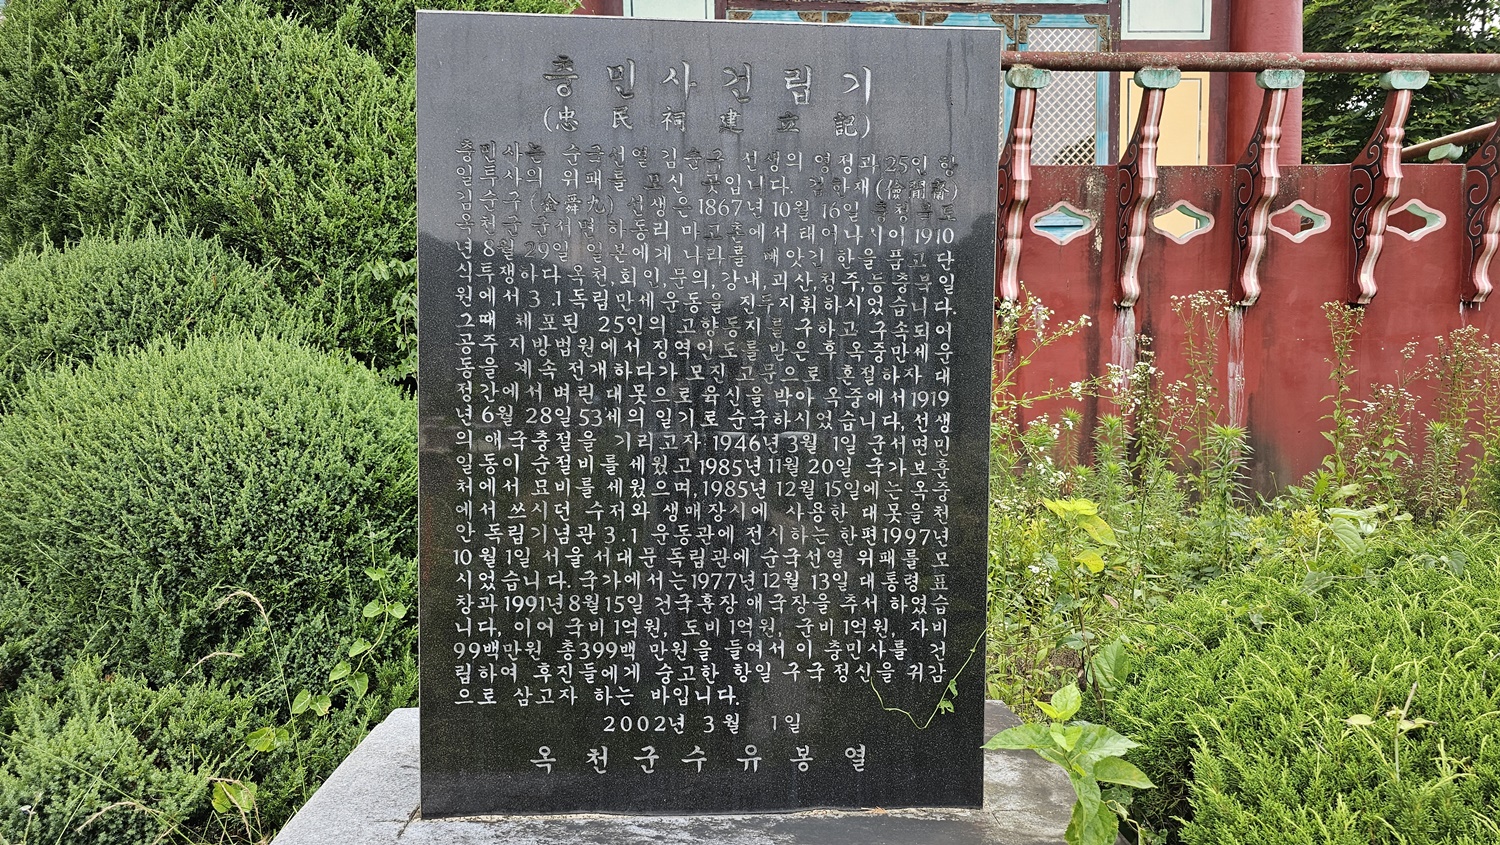 충민사건립기
(忠民祠建立記)
충민사는 순국선열 김순구 선생의 영정과 25인 항
일투사의 위패를 모신 곳입니다. 검한재(儉閒齋)
김순구(金舜九) 선생은 1867년 10월 16일 충청북도
옥천군 군서면 하동리 마고촌에서 태어나시어 1910
년 8월 29일 일본에게 나라를 빼앗긴 한을 품고 단
식투쟁하다 옥천, 회인, 문의, 강내, 괴산, 청주, 등 충북 일
원에서 3.1독립만세 운동을 진두지휘하시었습니다.
그때 체포된 25인의 고향동지를 구하고 구속되어
공주 지방법원에서 징역언도를 받은 후 옥중만세 운
동을 계속 전개하다가 모진고문으로 혼절하자 대
정간에서 벼린 대못으로 육신을 박아 옥중에서 1919
년 6월 28일 53세의 일기로 순국하시었습니다, 선생
의 애국충절을 기리고자 1946년 3월 1일 군서면민
일동이 순절비를 세웠고 1985년 11월 20일 국가보훈
처에서 묘비를 세웠으며, 1985년 12월 15일에는 옥중
에서 쓰시던 수저와 생매장시에 사용한 대못을 천
안 독립기념관 3.1 운동관에 전시하는 한편 1997년
10월 1일 서울 서대문독립관에 순국선열 위패를 모
시었습니다. 국가에서는 1977년 12월 13일 대통령 표
창과 1991년 8월 15일 건국훈장 애국장을 추서 하였습
니다, 이어 국비 1억원, 도비 1억원, 군비 1억원, 자비
99백만원 총399백 만원을 들여서 이 충민사를 건
립하여 후진들에게 숭고한 항일 구국정신을 귀감
으로 삼고자 하는 바입니다.
2002년 3월 1일
옥천군수유봉열